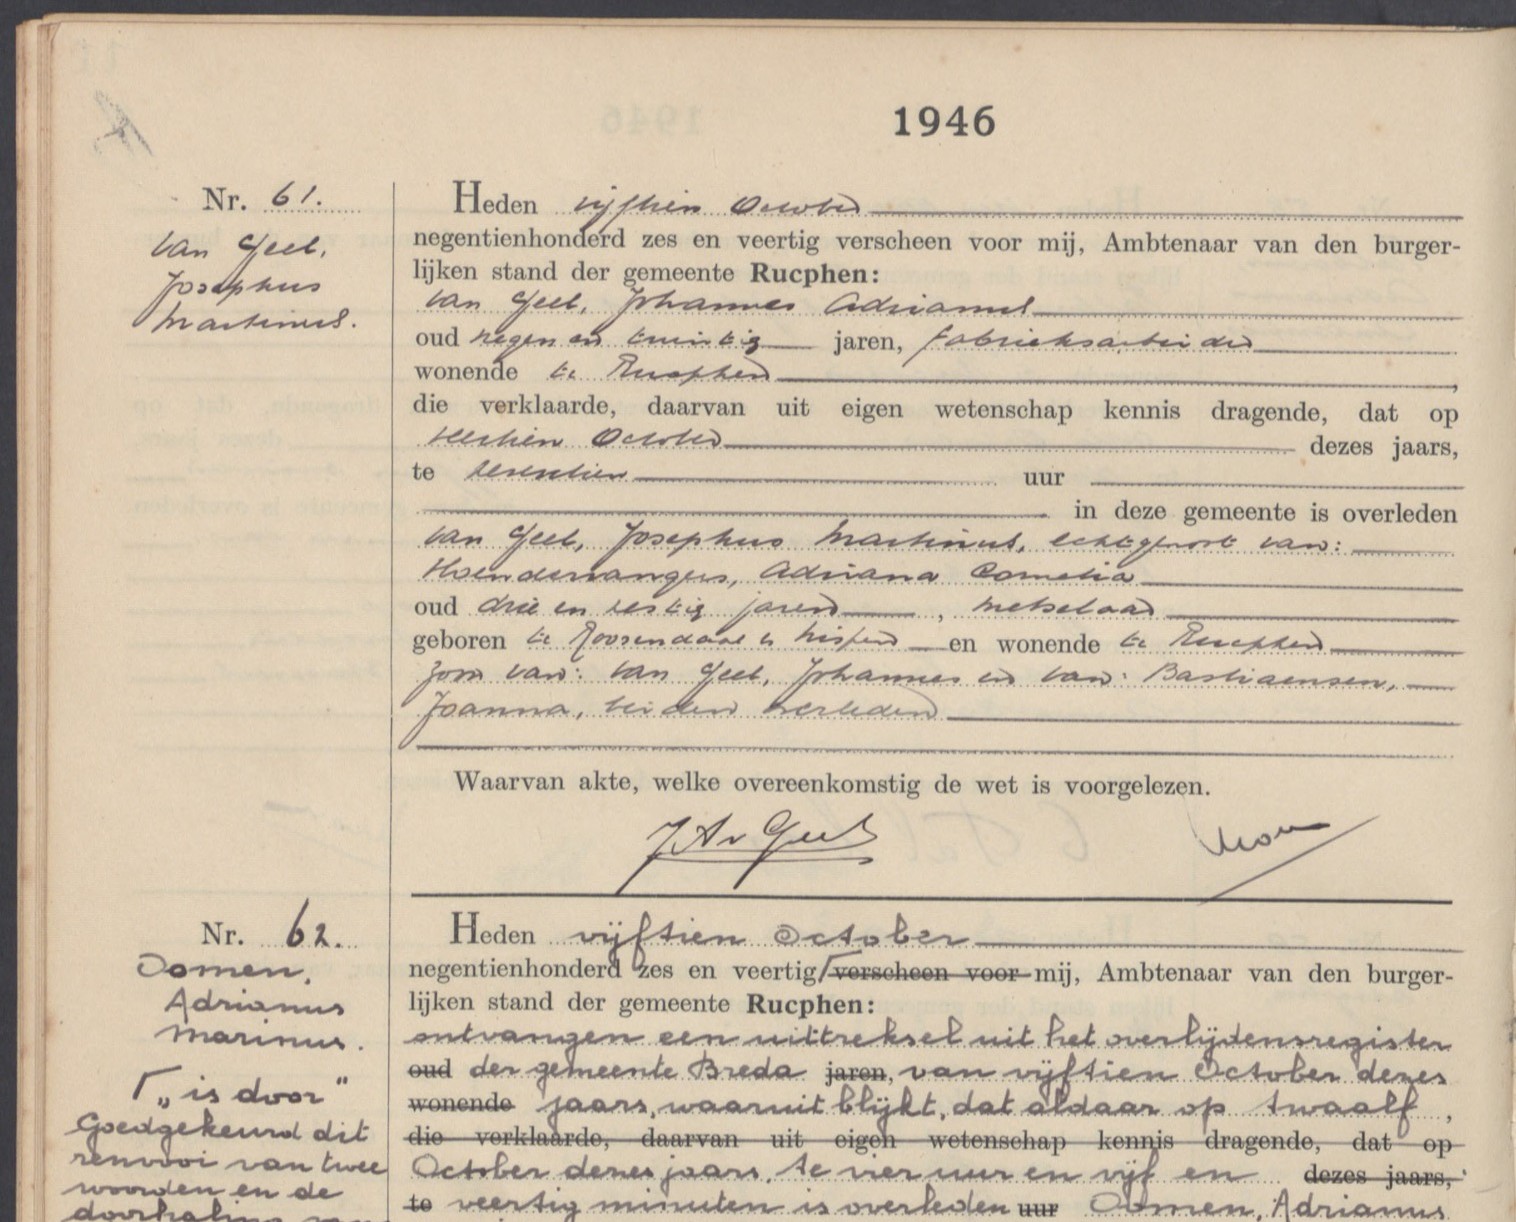 1946
Nr. 61.
van Geel,
Josephus
Martinus.
Heden vijftien October
negentienhonderd zes en veertig verscheen voor mij, Ambtenaar van den burger-
lijken stand der gemeente Rucphen:
van Geel, Johannes Adrianus
oud negen en twintig jaren, fabrieksarbeider
wonende te Rucphen,
die verklaarde, daarvan uit eigen wetenschap kennis dragende, dat op
veertien October dezes jaars,
te zeventien uur
in deze gemeente is overleden
van Geel, Josephus Martinus, echtgenoot van:
Hoendervangers, Adriana Cornelia
oud drie en zestig jaren, metselaar
geboren te Roosendaal en Nispen en wonende te Rucphen
zoon van: van Geel, Johannes en van: Bastiaensen,
Joanna, beiden overleden
Waarvan akte, welke overeenkomstig de wet is voorgelezen.
J A v Geel
Nr. 62.
Oomen,
Adrianus
Marinus.
Γ „is door"
Goedgekeurd dit
renvooi van twee
woorden en de
doorhaling van
Heden vijftien October
negentienhonderd zes en veertig Γ verscheen voor mij, Ambtenaar van den burger-
lijken stand der gemeente Rucphen:
ontvangen een uittreksel uit het overlijdensregister
oud der gemeente Breda jaren, van vijftien October dezes
wonende jaars, waaruit blijkt, dat aldaar op twaalf,
die verklaarde, daarvan uit eigen wetenschap kennis dragende, dat op
October dezes jaars, te vier uur en vijf en dezes jaars,
te veertig minuten is overleden uur Oomen, Adrianus